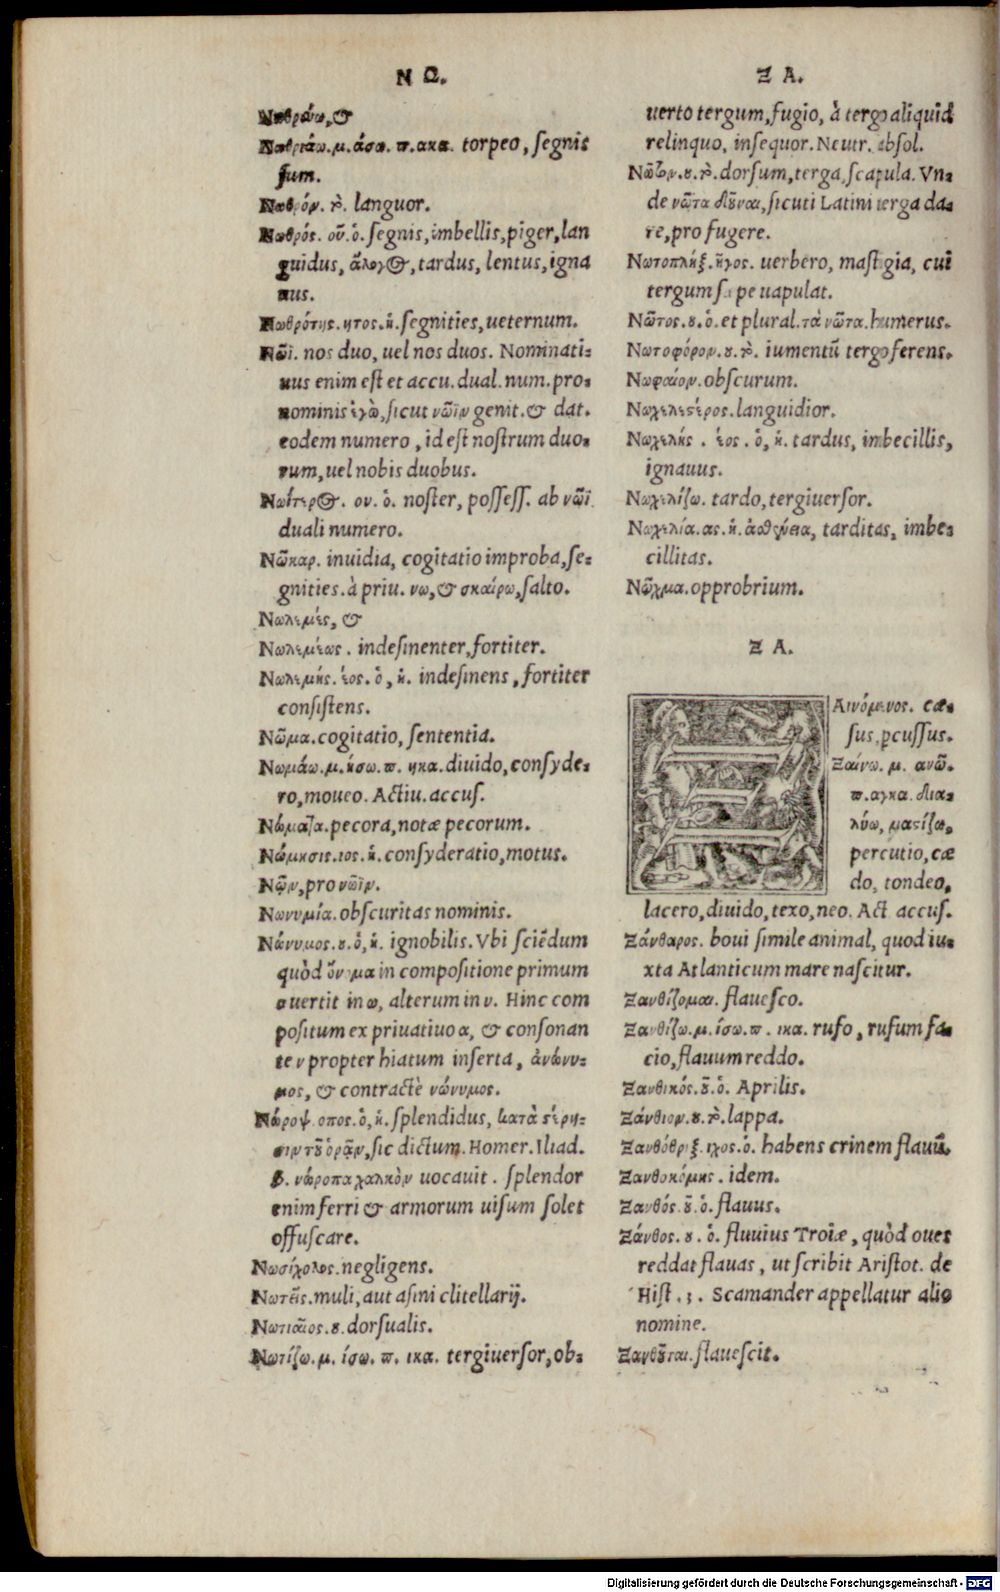 Ν Ω.
Νωθράνω, &
Νωθριάω. μ. άσω. π. ακα. torpeo, segnis
sum.
Νωθρόν. τὸ. languor.
Νωθρός. οῦ. ὁ. segnis, imbellis, piger, lan
guidus, ἄλογος, tardus, lentus, igna
uus.
Νωθρότης. ητος. ἡ. segnities, ueternum.
Νῶϊ. nos duo, uel nos duos. Nominati-
uus enim est et accu. dual. num. pro-
nominis ἐγὼ, sicut νῶϊν genit. & dat.
eodem numero, id est nostrum duo-
rum, uel nobis duobus.
Νωΐτερος. ου. ὁ. noster, possess. ab νῶϊ
duali numero.
Νῶκαρ. inuidia, cogitatio improba, se-
gnities. à priu. νω, & σκαίρω, salto.
Νωλεμές, &
Νωλεμέως. indesinenter, fortiter.
Νωλεμής. έος. ὁ, ἡ. indesinens, fortiter
consistens.
Νῶμα. cogitatio, sententia.
Νωμάω. μ. ήσω. π. ηκα. diuido, consyde-
ro, moueo. Actiu. accus.
Νώματα. pecora, notæ pecorum.
Νώμησις. ιος. ἡ. consyderatio, motus.
Νῷν, pro νῶϊν.
Νωνυμία. obscuritas nominis.
Νώνυμος. ου. ὁ, ἡ. ignobilis. Vbi sciēdum
quòd ὄνομα in compositione primum
o uertit in ω, alterum in υ. Hinc com
positum ex priuatiuo α, & consonan
te ν propter hiatum inserta, ἀνώνυ-
μος, & contractè νώνυμος.
Νώροψ. οπος. ὁ, ἡ. splendidus, κατὰ στέρη-
σιν τοῦ ὁρᾷν, sic dictum. Homer. Iliad.
β. νώροπα χαλκὸν uocauit. splendor
enim ferri & armorum uisum solet
offuscare.
Νωσίχολος. negligens.
Νωτεῖς. muli, aut asini clitellarij.
Νωτιαῖος. ου. dorsualis.
Νωτίζω. μ. ίσω. π. ικα. tergiuersor, ob-
Ξ Α.
uerto tergum, fugio, à tergo aliquid
relinquo, insequor. Neutr. absol.
Νῶτον. ου. τὸ. dorsum, terga, scapula. Vn-
de νῶτα δοῦναι, sicuti Latini terga da-
re, pro fugere.
Νωτοπλήξ. ῆγος. uerbero, mastigia, cui
tergum sæpe uapulat.
Νῶτος. ου. ὁ. et plural. τὰ νῶτα. humerus.
Νωτοφόρον. ου. τὸ. iumentū tergo ferens.
Νωφαίον. obscurum.
Νωχελέστερος. languidior.
Νωχελής. έος. ὁ, ἡ. tardus, imbecillis,
ignauus.
Νωχελίζω. tardo, tergiuersor.
Νωχελία. ας. ἡ. ἀσθένεια, tarditas, imbe-
cillitas.
Νῶχμα. opprobrium.
Ξ Α.
Ξ Αινόμενος. cæ-
sus, pcussus.
Ξαίνω. μ. ανῶ.
π. αγκα. δια-
λύω, μαστίζω,
percutio, cæ
do, tondeo,
lacero, diuido, texo, neo. Act accus.
Ξάνθαρος. boui simile animal, quod iu-
xta Atlanticum mare nascitur.
Ξανθίζομαι. flauesco.
Ξανθίζω. μ. ίσω. π. ικα. rufo, rufum fa-
cio, flauum reddo.
Ξανθικός. οῦ. ὁ. Aprilis.
Ξάνθιον. ου. τὸ. lappa.
Ξανθόθριξ. ιχος. ὁ. habens crinem flauū.
Ξανθοκόμης. idem.
Ξανθός. οῦ. ὁ. flauus.
Ξάνθος. ου. ὁ. fluuius Troiæ, quòd oues
reddat flauas, ut scribit Aristot. de
Hist. 3. Scamander appellatur alio
nomine.
Ξανθοῦται. flauescit.
Digitalisierung gefördert durch die Deutsche Forschungsgemeinschaft - DFG